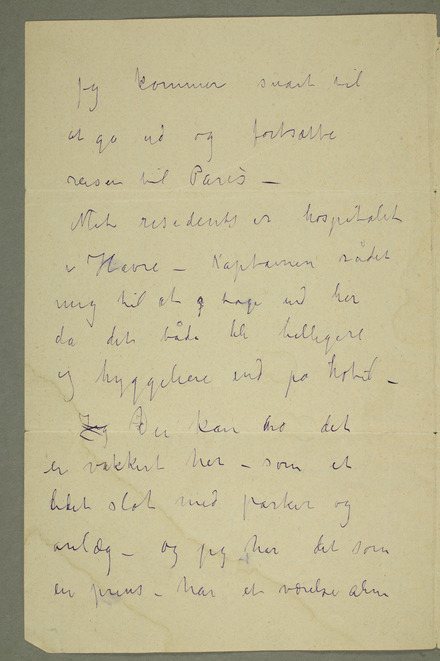 Jeg kommer snart til
at gå ud og fortsætte
reisen til Paris –
Mit residents er hospitalet
i Havre – Kaptainen rådet
mig til at tage ind her
da det både ble billigere
og hyggeligere end på hotel –
Jeg Du kan tro det
er vakkert her – som et
lidet slot med parker og
anlæg – og jeg har det som
en prins – har et værelse alene